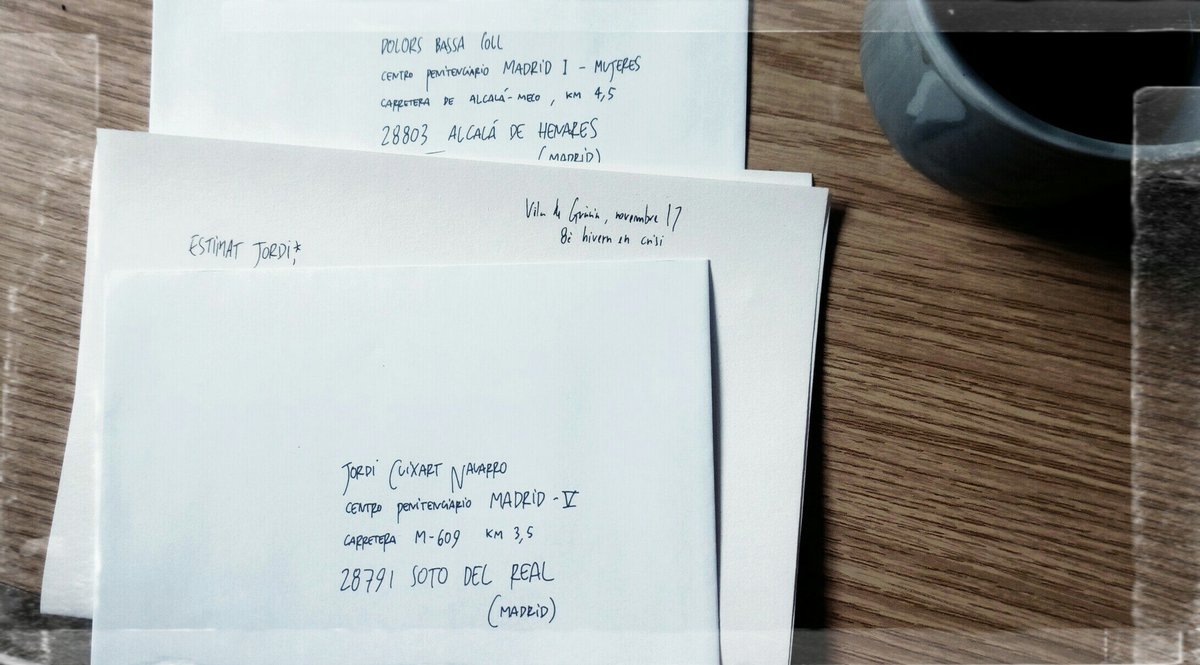 DOLORS BASSA COLL
CENTRO PENITENCIARIO MADRID I - MUJERES
CARRETERA DE ALCALÁ-MECO, KM 4,5
28803 ALCALÁ DE HENARES
(MADRID)
Vila de Gràcia, novembre 17
8è hivern en crisi
ESTIMAT JORDI,*
JORDI CUIXART NAVARRO
CENTRO PENITENCIARIO MADRID - V
CARRETERA M-609 KM 3,5
28791 SOTO DEL REAL
(MADRID)